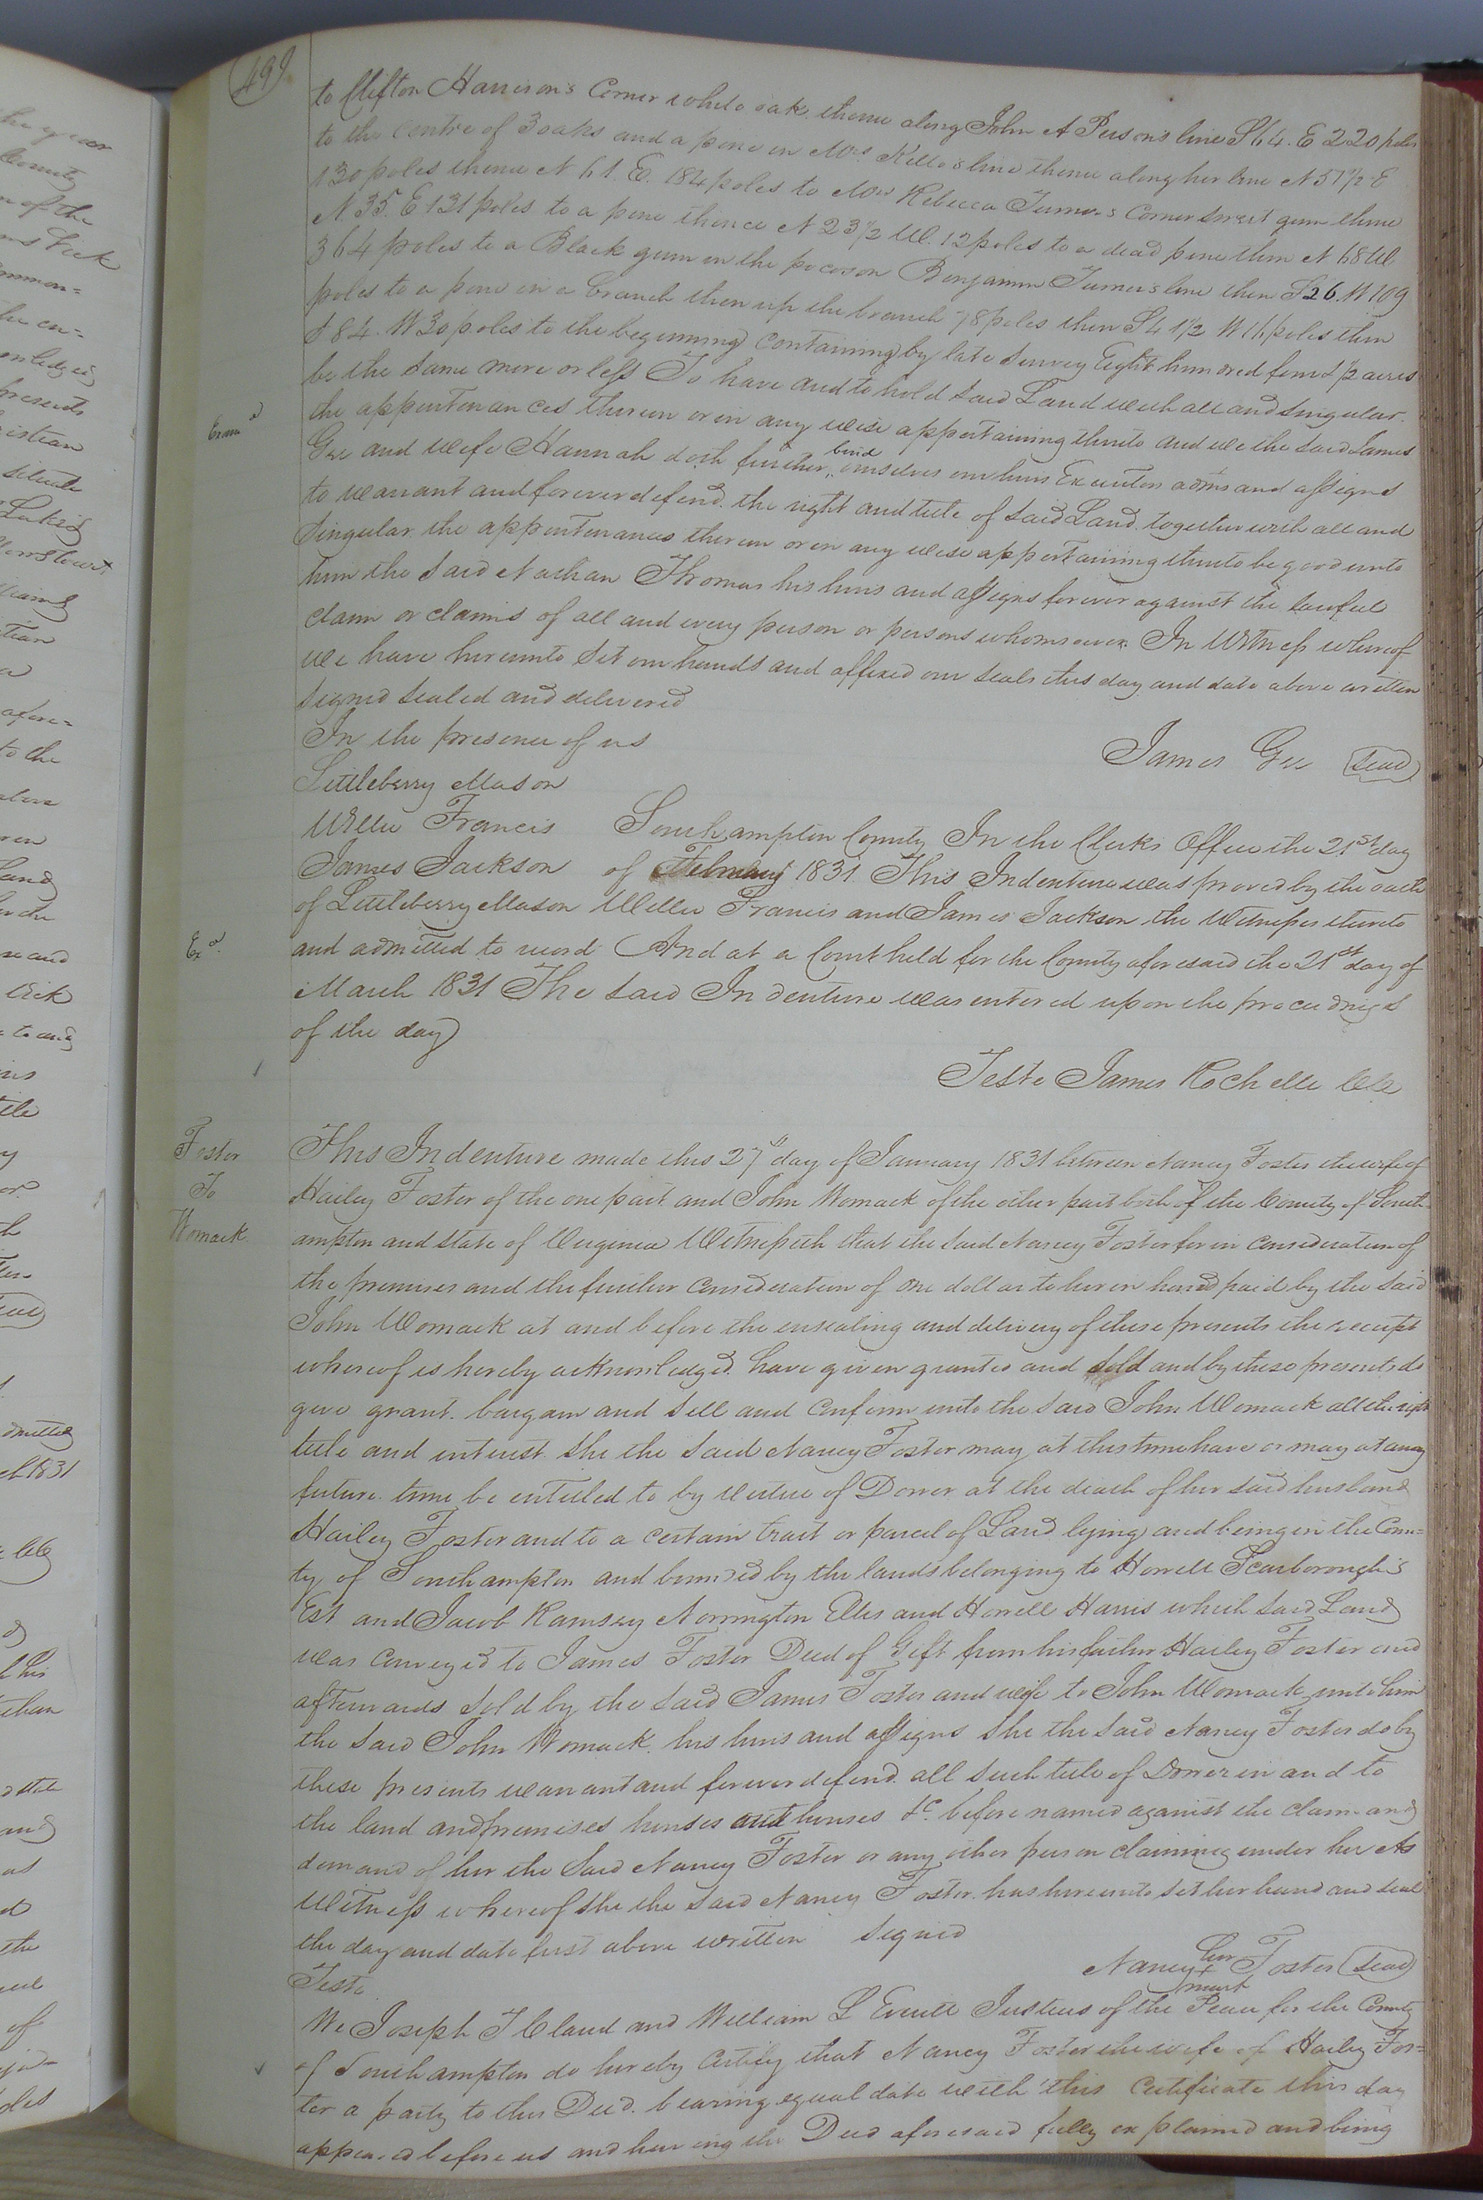 499
to Clifton Harrison's Corner white oak thence along John A Person's line S 64. E 220 poles
to the Centre of 3 oaks and a pine in Mrs Kello's line thence along her line N 51 1/2 E
130 poles thence N 61 E. 184 poles to Mrs Rebecca Turner's Corner sweet gum thence
N 35. E 131 poles to a pine thence N 23 1/2 W. 12 poles to a dead pine then N 68 W
364 poles to a Black gum in the pocoson Benjamin Turner's line then S 26. W 109
poles to a pine in a branch then up the branch 78 poles then S 41 1/2 W 16 poles then
S 84. W 30 poles to the beginning containing by late survey Eight hundred 1/2 acres
be the same more or less To have and to hold said Land with all and singular
the appertenances therein or in any wise appertaining thereto and we the said James
Exam.d
Gee and wife Hannah doth further bind ourselves our heirs Executors adms and assigns
to warrant and forever defend the right and title of said Land together with all and
Singular the appertenances therein or in any wise appertaining thereto be good unto
him the said Nathan Thomas his heirs and assigns forever against the lawful
claim or claims of all and every person or persons whomsoever. In Witness whereof
we have hereunto set our hands and affixed our seals this day and date above written
Signed sealed and delivered
In the presence of us
James Gee Seal
Littleberry Mason
Willie Francis Southampton County In the Clerks Office the 21st day
James Jackson of February 1831 This Indenture was proved by the oaths
of Littleberry Mason Willie Francis and James Jackson the Witnesses thereto
Ex.d
and admitted to record And at a Court held for the County aforesaid the 21st day of
March 1831 The said Indenture was entered upon the proceedings
of the day
Teste James Rochelle
Foster
To
Womack
This Indenture made this 27th day of January 1831 between Nancy Foster the wife of
Hailey Foster of the one part and John Womack of the other part both of the County of South-
ampton and state of Virginia Witnesseth that the said Nancy Foster for in consideration of
the premises and the further consideration of one dollar to her in hand paid by the said
John Womack at and before the ensealing and delivery of these presents the receipt
whereof is hereby acknowledged have given granted and sold and by these presents do
give grant. bargain and sell and confirm unto the said John Womack all the right
title and interest she the said Nancy Foster may at this time have or may at any
future time be entitled to by virtue of Dower at the death of her said husband
Hailey Foster and to a certain tract or parcel of Land lying and being in the Coun=
ty of Southampton and bounded by the lands belonging to Howell Scarborough's
Est and Jacob Ramsey Norrington Ellis and Howell Harris which said Land
was conveyed to James Foster Deed of Gift from his father Hailey Foster and
afterwards sold by the said James Foster and wife to John Womack unto him
the said John Womack his heirs and assigns she the said Nancy Foster do by
these presents warrant and forever defend all such title of Dower in and to
the land and premises houses and houses &c. before named against the claim and
demand of her the said Nancy Foster or any other person claiming under her As
Witness whereof she the said Nancy Foster has hereunto set her hand and seal
the day and date first above written Signed
Nancy her x mark Foster Seal
Teste
We Joseph T Claud and William L Everitt Justices of the Peace for the County
of Southampton do hereby certify that Nancy Foster the wife of Hailey Fos=
ter a party to this Deed bearing equal date with this Certificate this day
appeared before us and having the Deed aforesaid fully explained and being